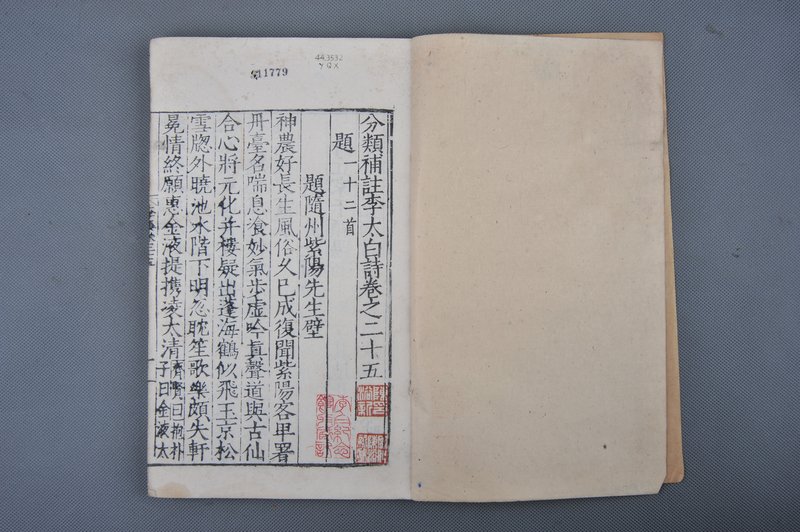 11779
443532
分類補註李太白詩卷之二十五
題一十二首
題隨州紫陽先生壁
神農好長生風俗久已成復聞紫陽客早署
丹臺名喘息飡妙氣步虛吟真聲道與古仙
合心將元化并樓疑出蓬海鶴似飛玉京松
雪窓外曉池水階下明忽耽笙歌樂頗失軒
冕情終願惠金液提携凌太清齊賢曰抱朴
子曰金液太